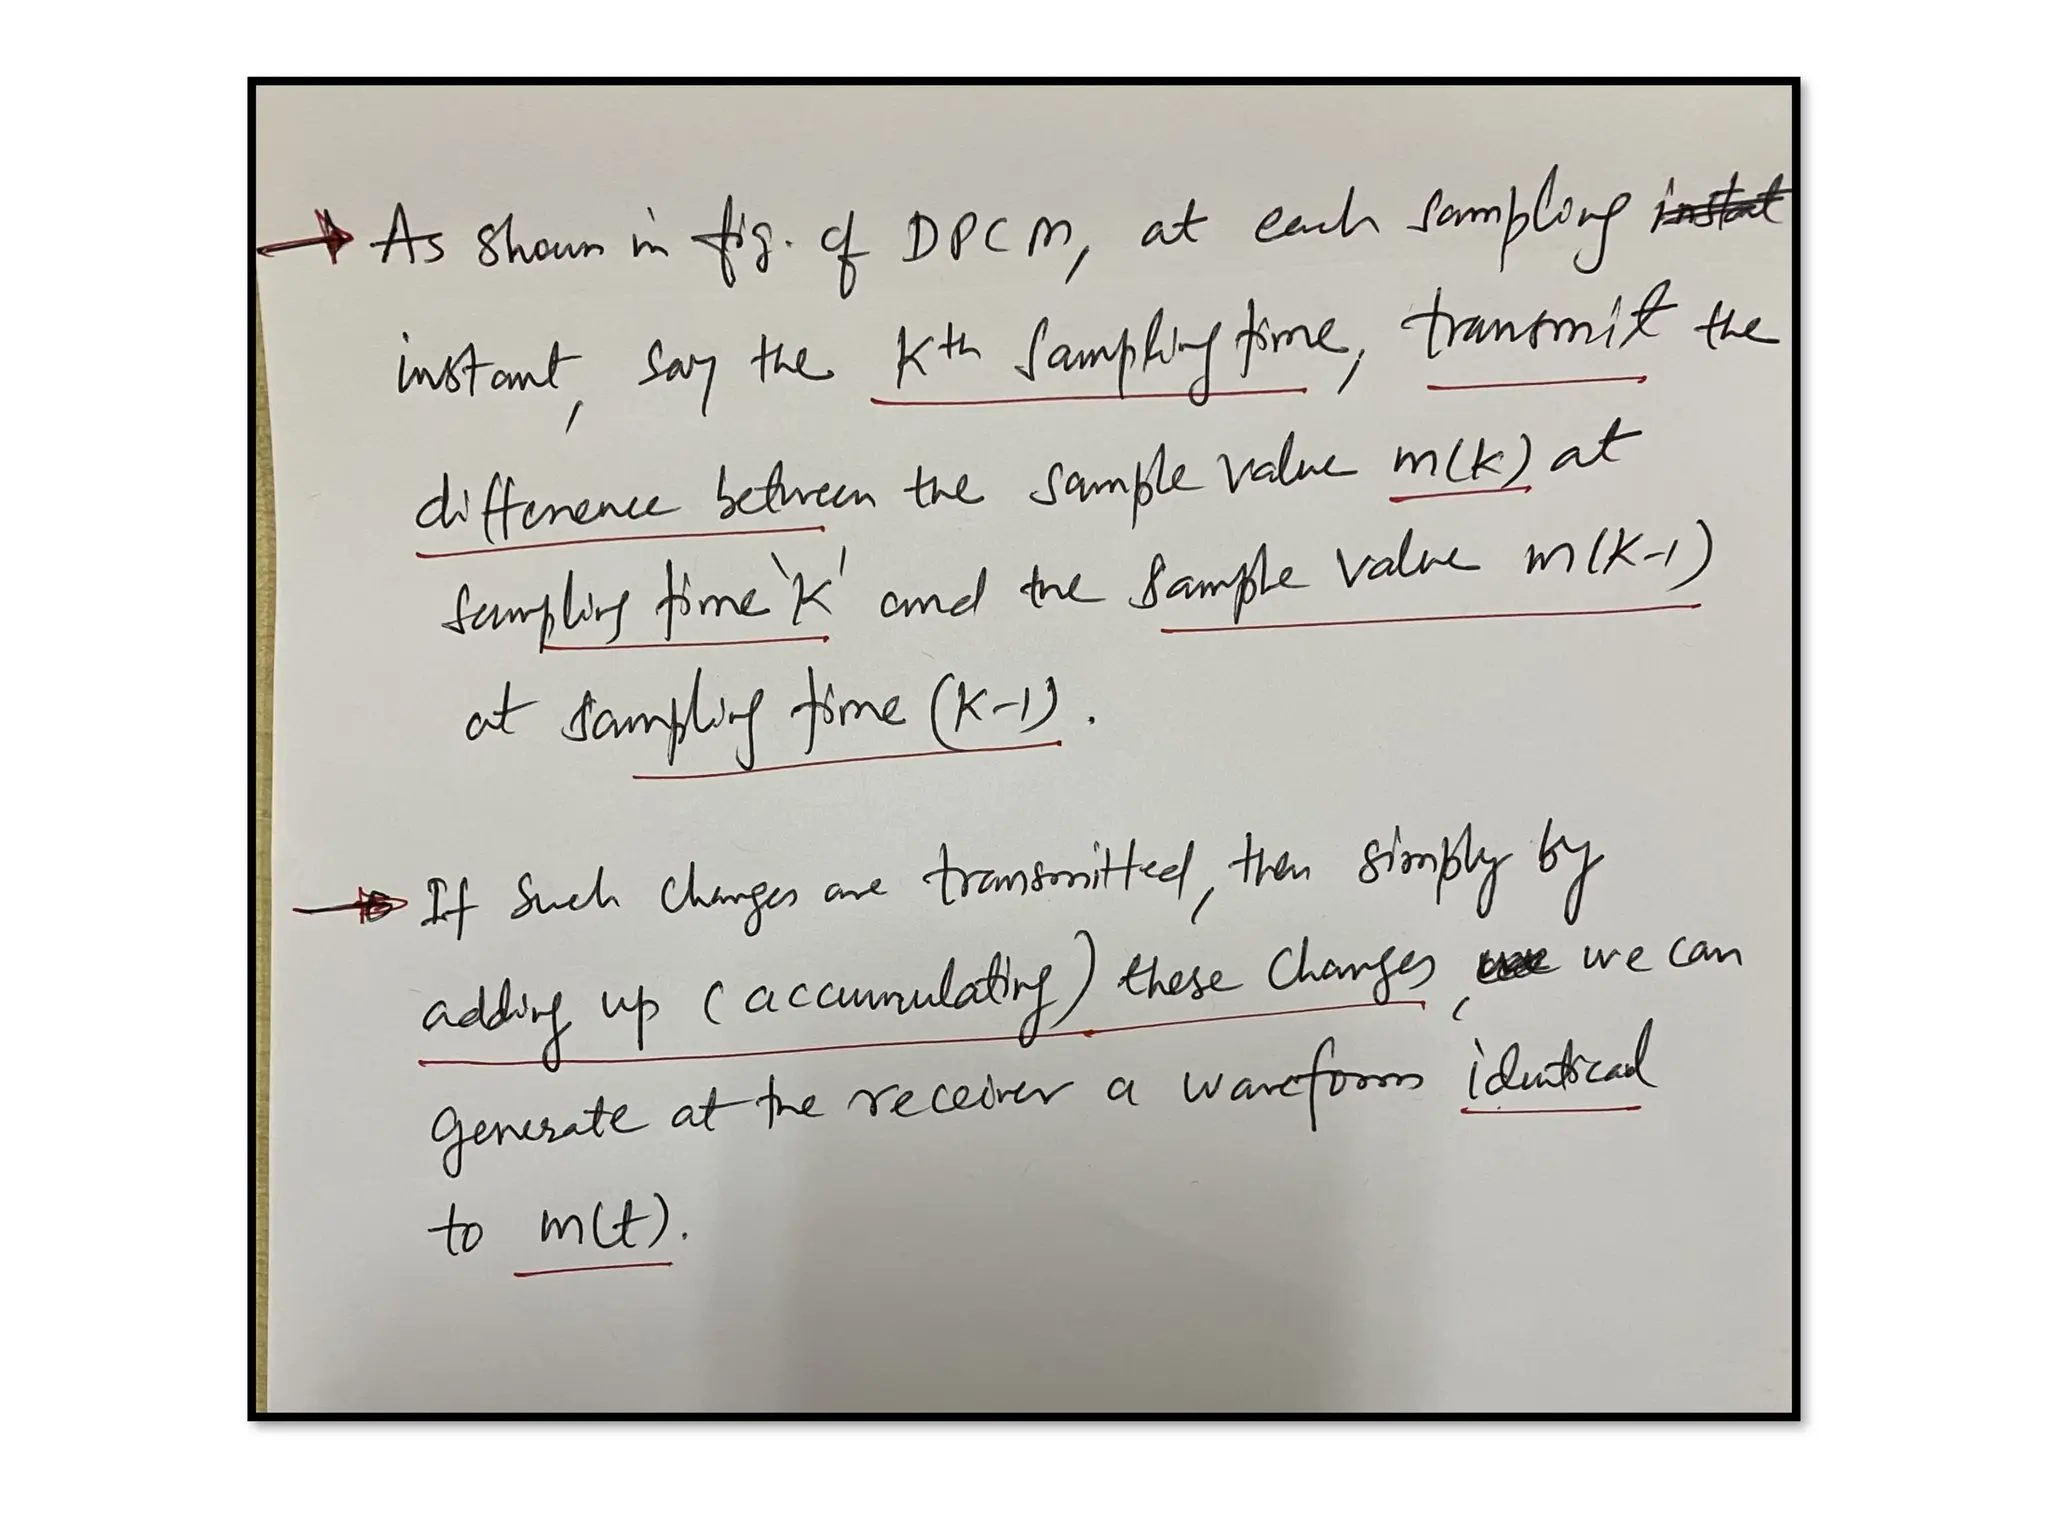 → As shown in fig. of DPCM, at each sampling instat
instant, say the Kth sampling time, transmit the
difference between the sample value m(k) at
sampling time 'K' and the sample value m(K-1)
at sampling time (K-1).
→ If such changes are transmitted, then simply by
adding up (accumulating) these changes, we can
generate at the receiver a waveform identical
to m(t).